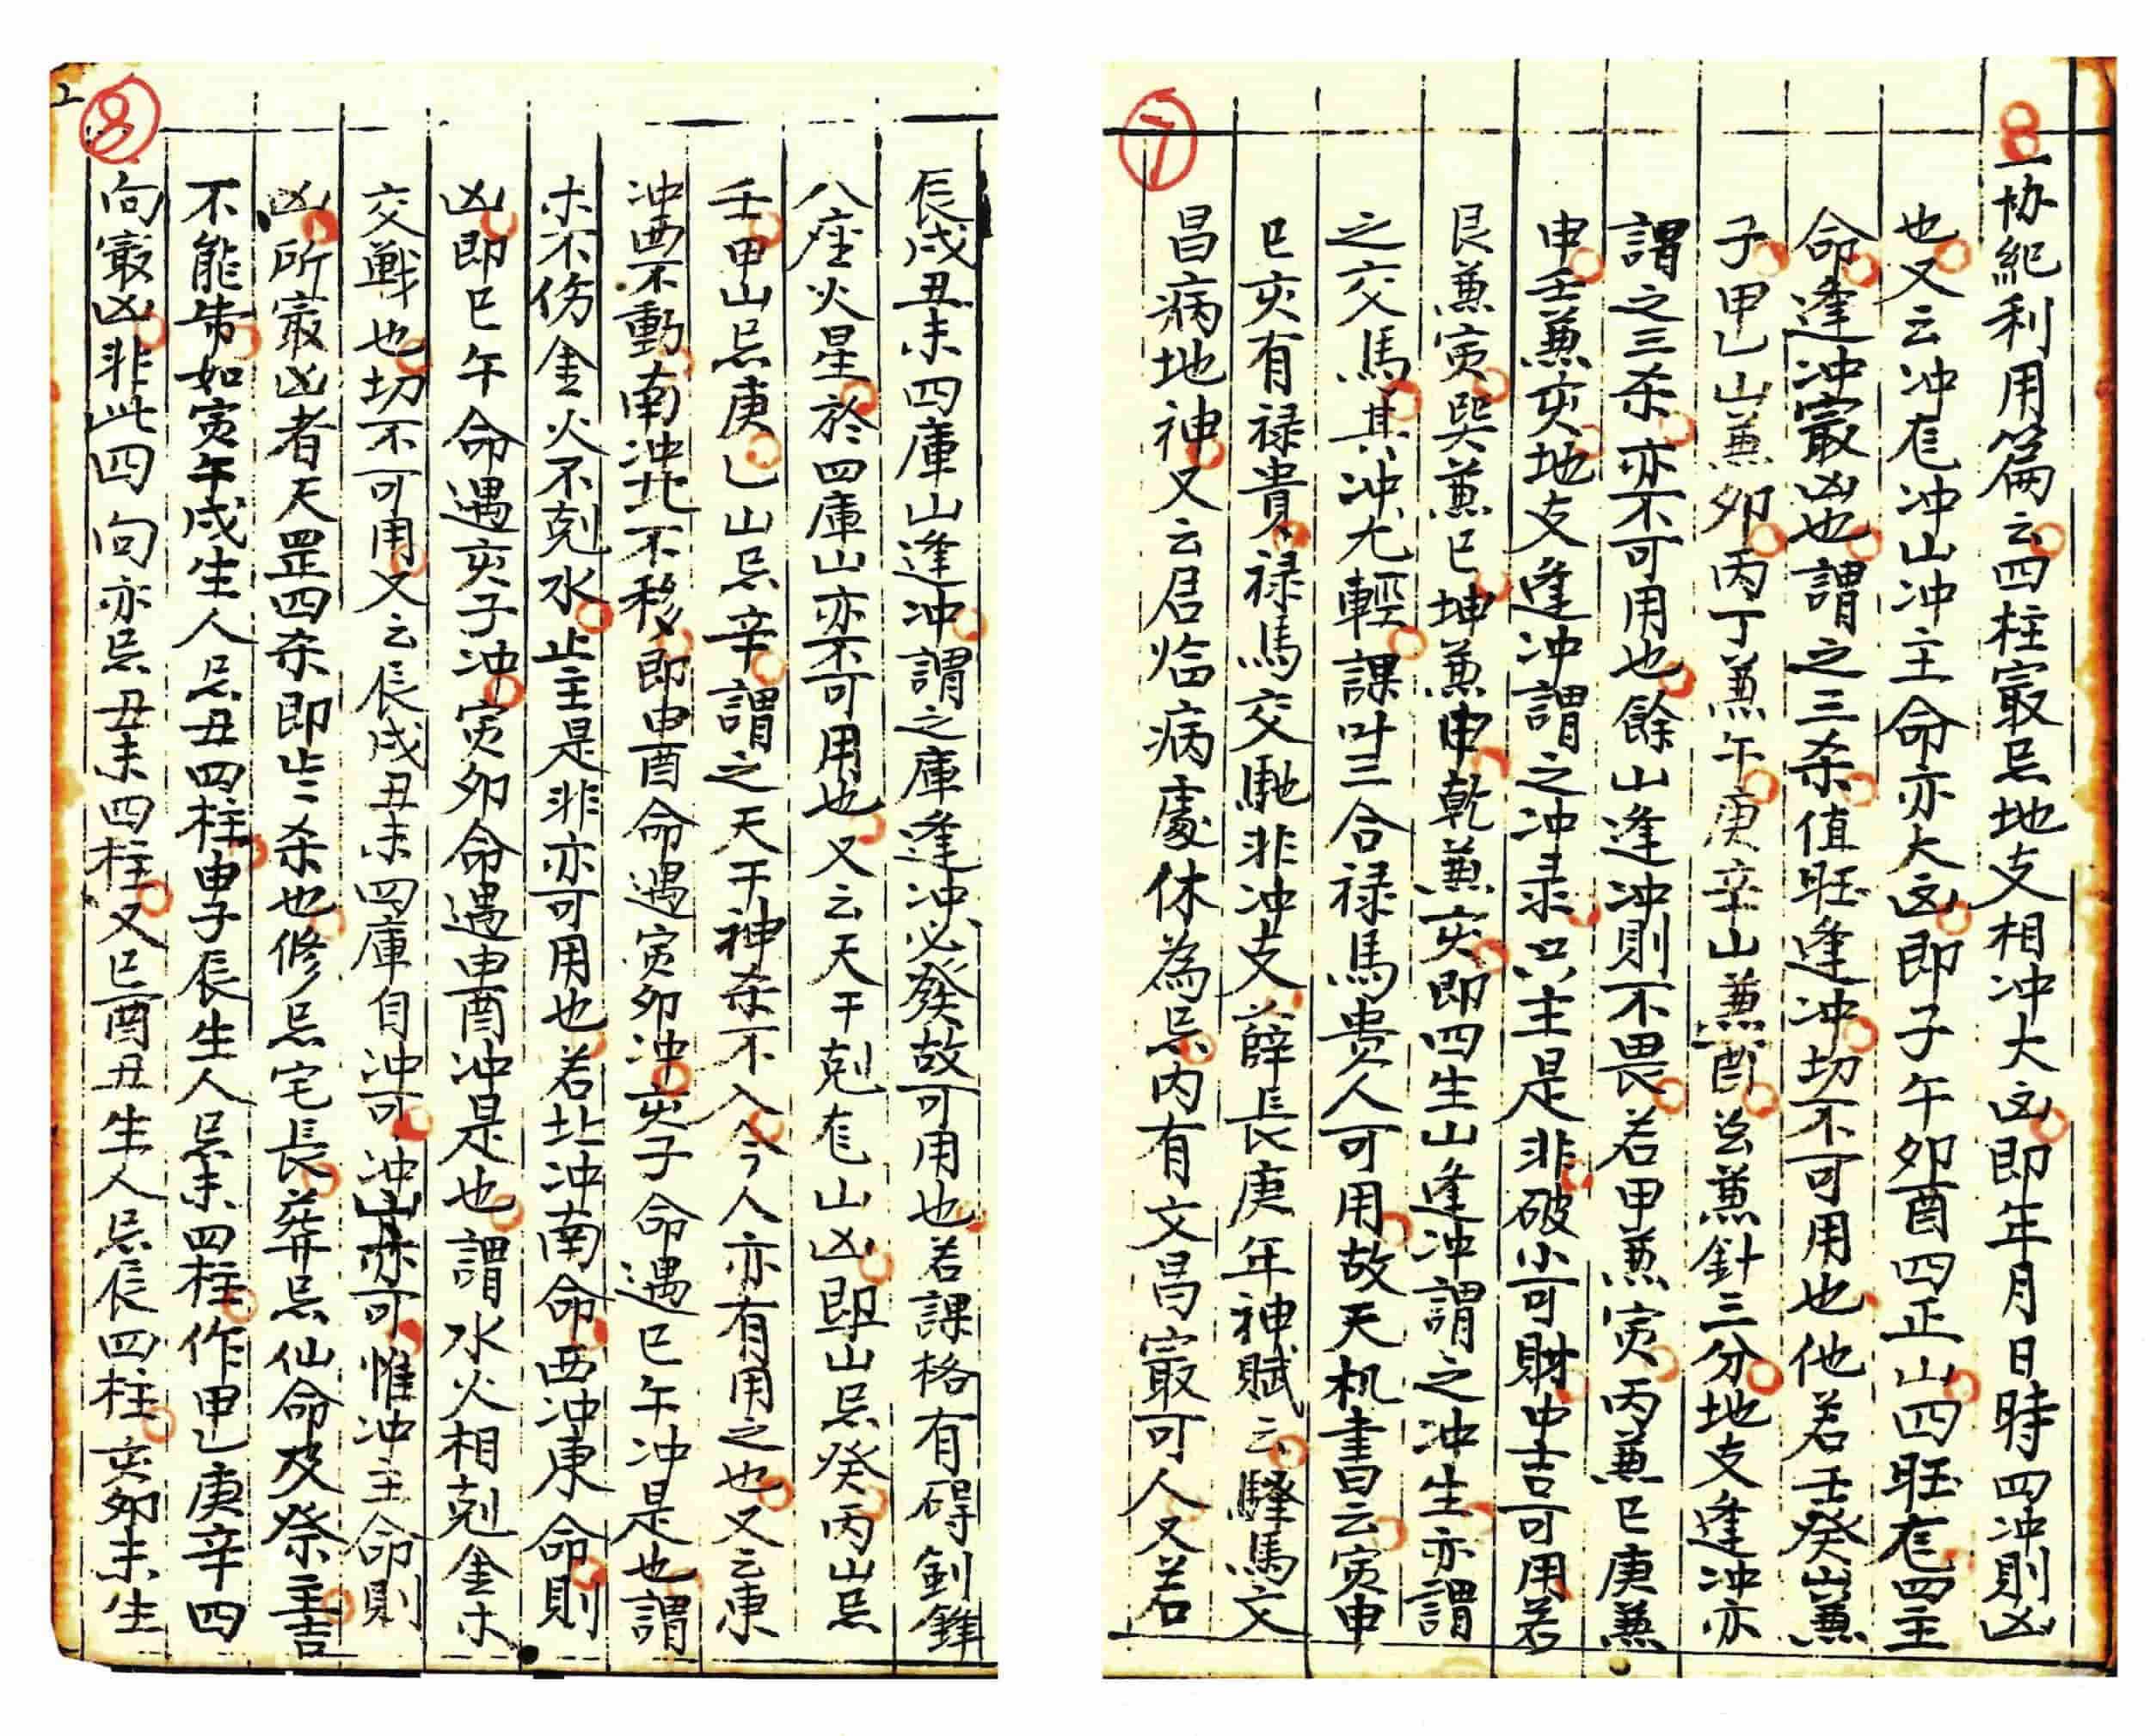 ⑦
一协紀利用篇云四柱㝡忌地支相冲大凶即年月日時四冲則凶
也又云冲庀冲山冲主命亦大凶即子午卯酉四正山四旺庀四主
命逢冲㝡凶也謂之三杀值旺逢冲切不可用也他若壬癸山兼
子甲乙山兼卯丙丁兼午庚辛山兼酉兹兼針三分地支逢冲亦
謂之三杀亦不可用也餘山逢冲則不畏若甲兼寅丙兼巳庚兼
申壬兼亥地支逢冲謂之冲录只主是非破小可財中吉可用若
艮兼寅巽兼巳坤兼申乾兼亥即四生山逢冲謂之冲生亦謂
之交馬其冲尤輕課叶三合禄馬贵人可用故天机書云寅申
巳亥有禄貴禄馬交馳非冲支薛長庚年神賦云驛馬文
昌病地神又云居临病處休為忌内有文昌㝡可人又若
⑧
辰戌丑未四庫山逢冲謂之庫逢冲必發故可用也若課格有碍剑鋒
八座火星於四庫山亦不可用也又云天干剋庀山凶即山忌癸丙山忌
壬甲山忌庚乙山忌辛謂之天干神杀不入今人亦有用之也又云東
冲西不動南冲北不移即申酉命遇寅卯冲亥子命遇巳午冲是也謂
木不伤金火不剋水止主是非亦可用也若北冲南命西冲東命則
凶即巳午命遇亥子冲寅卯命遇申酉冲是也謂水火相剋金木
交戰也切不可用又云辰戌丑未四庫自冲可冲山亦可惟冲主命則
凶所㝡凶者天罡四杀即此杀也修忌宅長葬忌仙命及祭主吉
不能制如寅午戌生人忌丑四柱申子辰生人忌未四柱作甲乙庚辛四
向㝡凶非此四向亦忌丑未四柱又巳酉丑生人忌辰四柱亥卯未生